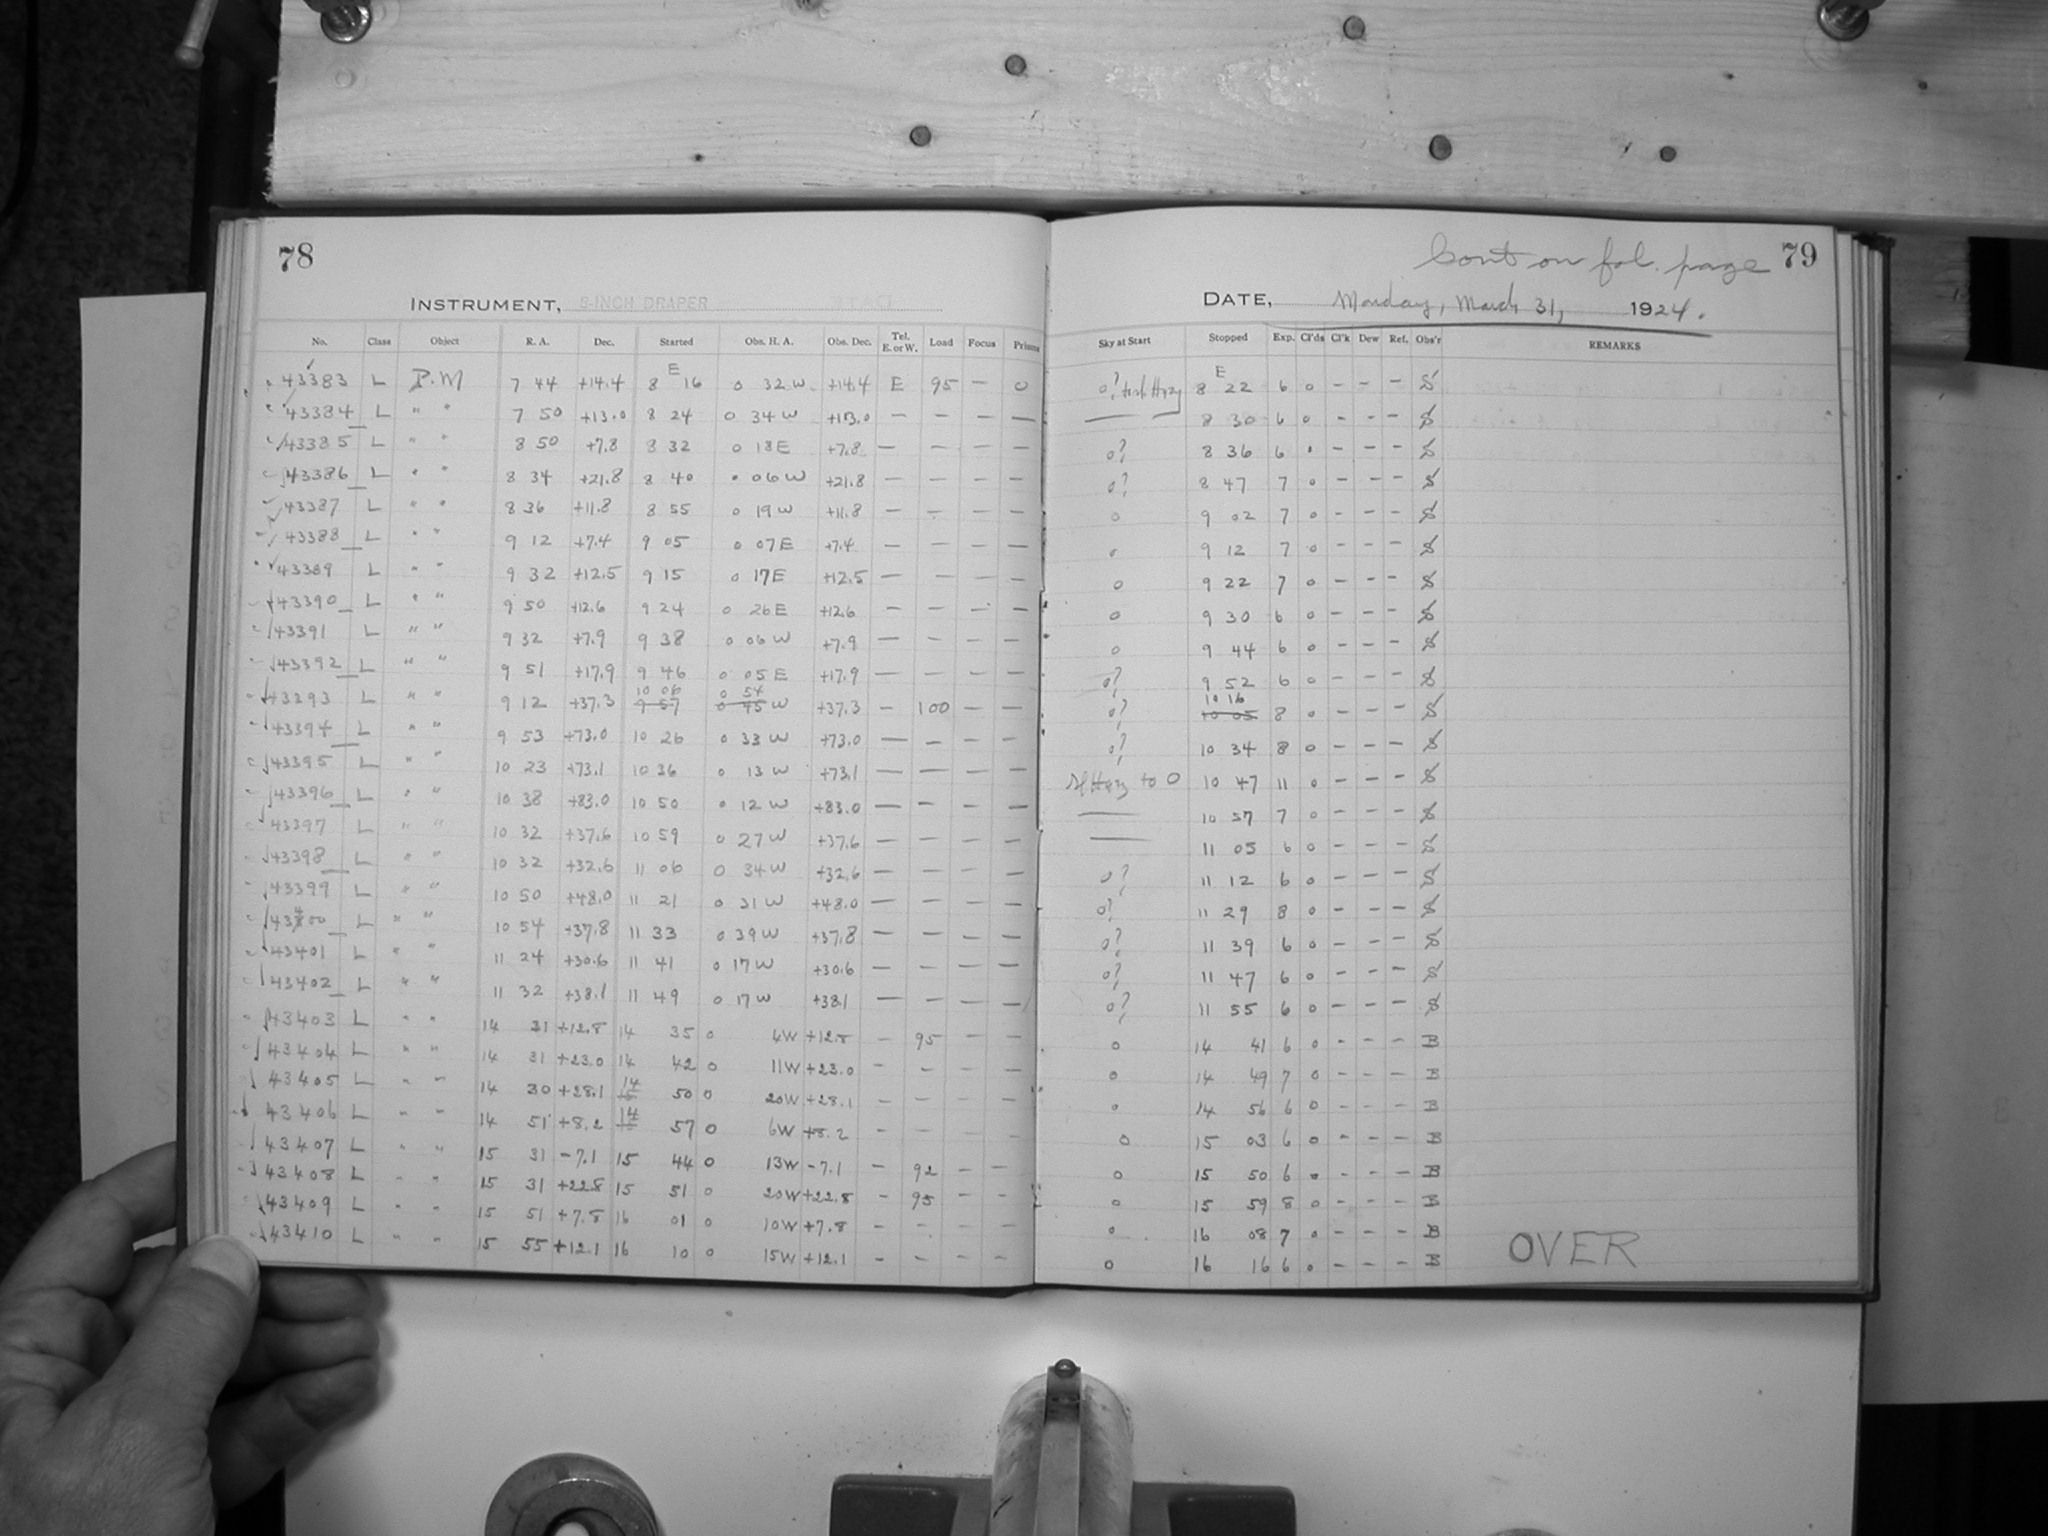 78
INSTRUMENT, 8-INCH DRAPER
No. Class Object R. A. Dec. Started Obs. H. A. Obs. Dec. Tel. E. or W. Load Focus Prisms
43383 L P.M 7 44 +14.4 8 E 16 0 32 W +14.4 E 95 — 0
43384 L " " 7 50 +13.0 8 24 0 34 W +13.0 — — — —
43385 L " " 8 50 +7.8 8 32 0 18 E +7.8 — — — —
43386 L " " 8 34 +21.8 8 40 0 06 W +21.8 — — — —
43387 L " " 8 36 +11.8 8 55 0 19 W +11.8 — — — —
43388 L " " 9 12 +7.4 9 05 0 07 E +7.4 — — — —
43389 L " " 9 32 +12.5 9 15 0 17 E +12.5 — — — —
43390 L " " 9 50 +12.6 9 24 0 26 E +12.6 — — — —
43391 L " " 9 32 +7.9 9 38 0 06 W +7.9 — — — —
43392 L " " 9 51 +17.9 9 46 0 05 E +17.9 — — — —
43293 L " " 9 12 +37.3 10 06 9 57 0 54 0 45 W +37.3 — 100 — —
43394 L " " 9 53 +73.0 10 26 0 33 W +73.0 — — — —
43395 L " " 10 23 +73.1 10 36 0 13 W +73.1 — — — —
43396 L " " 10 38 +83.0 10 50 0 12 W +83.0 — — — —
43397 L " " 10 32 +37.6 10 59 0 27 W +37.6 — — — —
43398 L " " 10 32 +32.6 11 06 0 34 W +32.6 — — — —
43399 L " " 10 50 +48.0 11 21 0 31 W +48.0 — — — —
43400 L " " 10 54 +37.8 11 33 0 39 W +37.8 — — — —
43401 L " " 11 24 +30.6 11 41 0 17 W +30.6 — — — —
43402 L " " 11 32 +38.1 11 49 0 17 W +38.1 — — — —
43403 L " " 14 31 +12.8 14 35 0 4W +12.8 - 95 - -
43404 L " " 14 31 +23.0 14 42 0 11W +23.0 - - - -
43405 L " " 14 30 +28.1 14 50 0 20W +28.1 - - - -
43406 L " " 14 51 +8.2 14 57 0 6W +8.2 - - - -
43407 L " " 15 31 -7.1 15 44 0 13W -7.1 - 92 - -
43408 L " " 15 31 +22.8 15 51 0 20W +22.8 - 95 - -
43409 L " " 15 51 +7.8 16 01 0 10W +7.8 - - - -
43410 L " " 15 55 +12.1 16 10 0 15W +12.1 - - - -
Cont on fol. page 79
DATE, Monday, March 31, 1924.
Sky at Start Stopped Exp. Cl'ds Cl'k Dew Ref. Obs'r REMARKS
0? Hazy 8 E 22 6 0 - - - S
—— 8 30 6 0 - - - S
0? 8 36 6 0 - - - S
0? 8 47 7 0 - - - S
0 9 02 7 0 - - - S
0 9 12 7 0 - - - S
0 9 22 7 0 - - - S
0 9 30 6 0 - - - S
0 9 44 6 0 - - - S
0? 9 52 6 0 - - - S
0? 10 16 10 05 8 0 - - - S
0? 10 34 8 0 - - - S
Sl Hazy to 0 10 47 11 0 - - - S
—— 10 57 7 0 - - - S
—— 11 05 6 0 - - - S
0? 11 12 6 0 - - - S
0? 11 29 8 0 - - - S
0? 11 39 6 0 - - - S
0? 11 47 6 0 - - - S
0? 11 55 6 0 - - - S
0 14 41 6 0 - - - B
0 14 49 7 0 - - - B
0 14 56 6 0 - - - B
0 15 03 6 0 - - - B
0 15 50 6 0 - - - B
0 15 59 8 0 - - - B
0 16 08 7 0 - - - B
0 16 16 6 0 - - - B
OVER